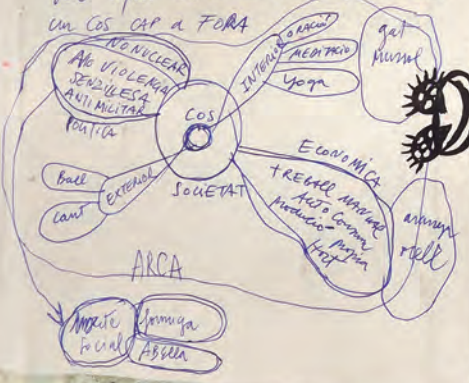 un COS CAP a FORA
NO NUCLEAR
NO VIOLENCIA
SENZILLESA
ANTIMILITAR
POLITICA
INTERIOR
ORACIÓ
MEDITACIO
Yoga
gat
mussol
COS
SOCIETAT
EXTERIOR
Ball
Cant
ECONOMICA
TREBALL MANUAL
AUTO Consum
Producio-propia
Hort
aranya
ocell
ARCA
Insecte
Social
formiga
ABella